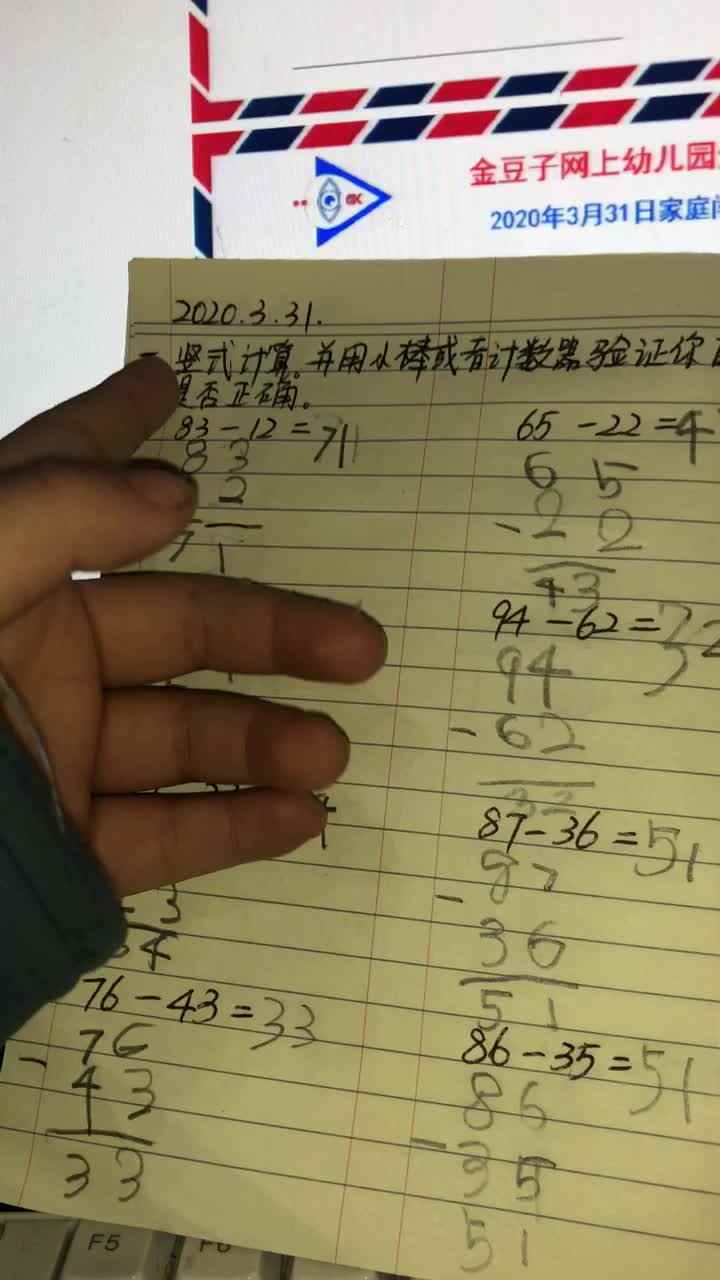 金豆子网上幼儿园
2020年3月31日家庭
2020.3.31.
竖式计算。并用小棒或者计数器验证你
是否正确。
83-12=71
83
2
71
65-22=4
65
-22
43
94-62=32
94
-62
32
87-36=51
87
-
36
51
3
4
76-43=33
76
-43
33
86-35=51
86
-35
51
F5
F6